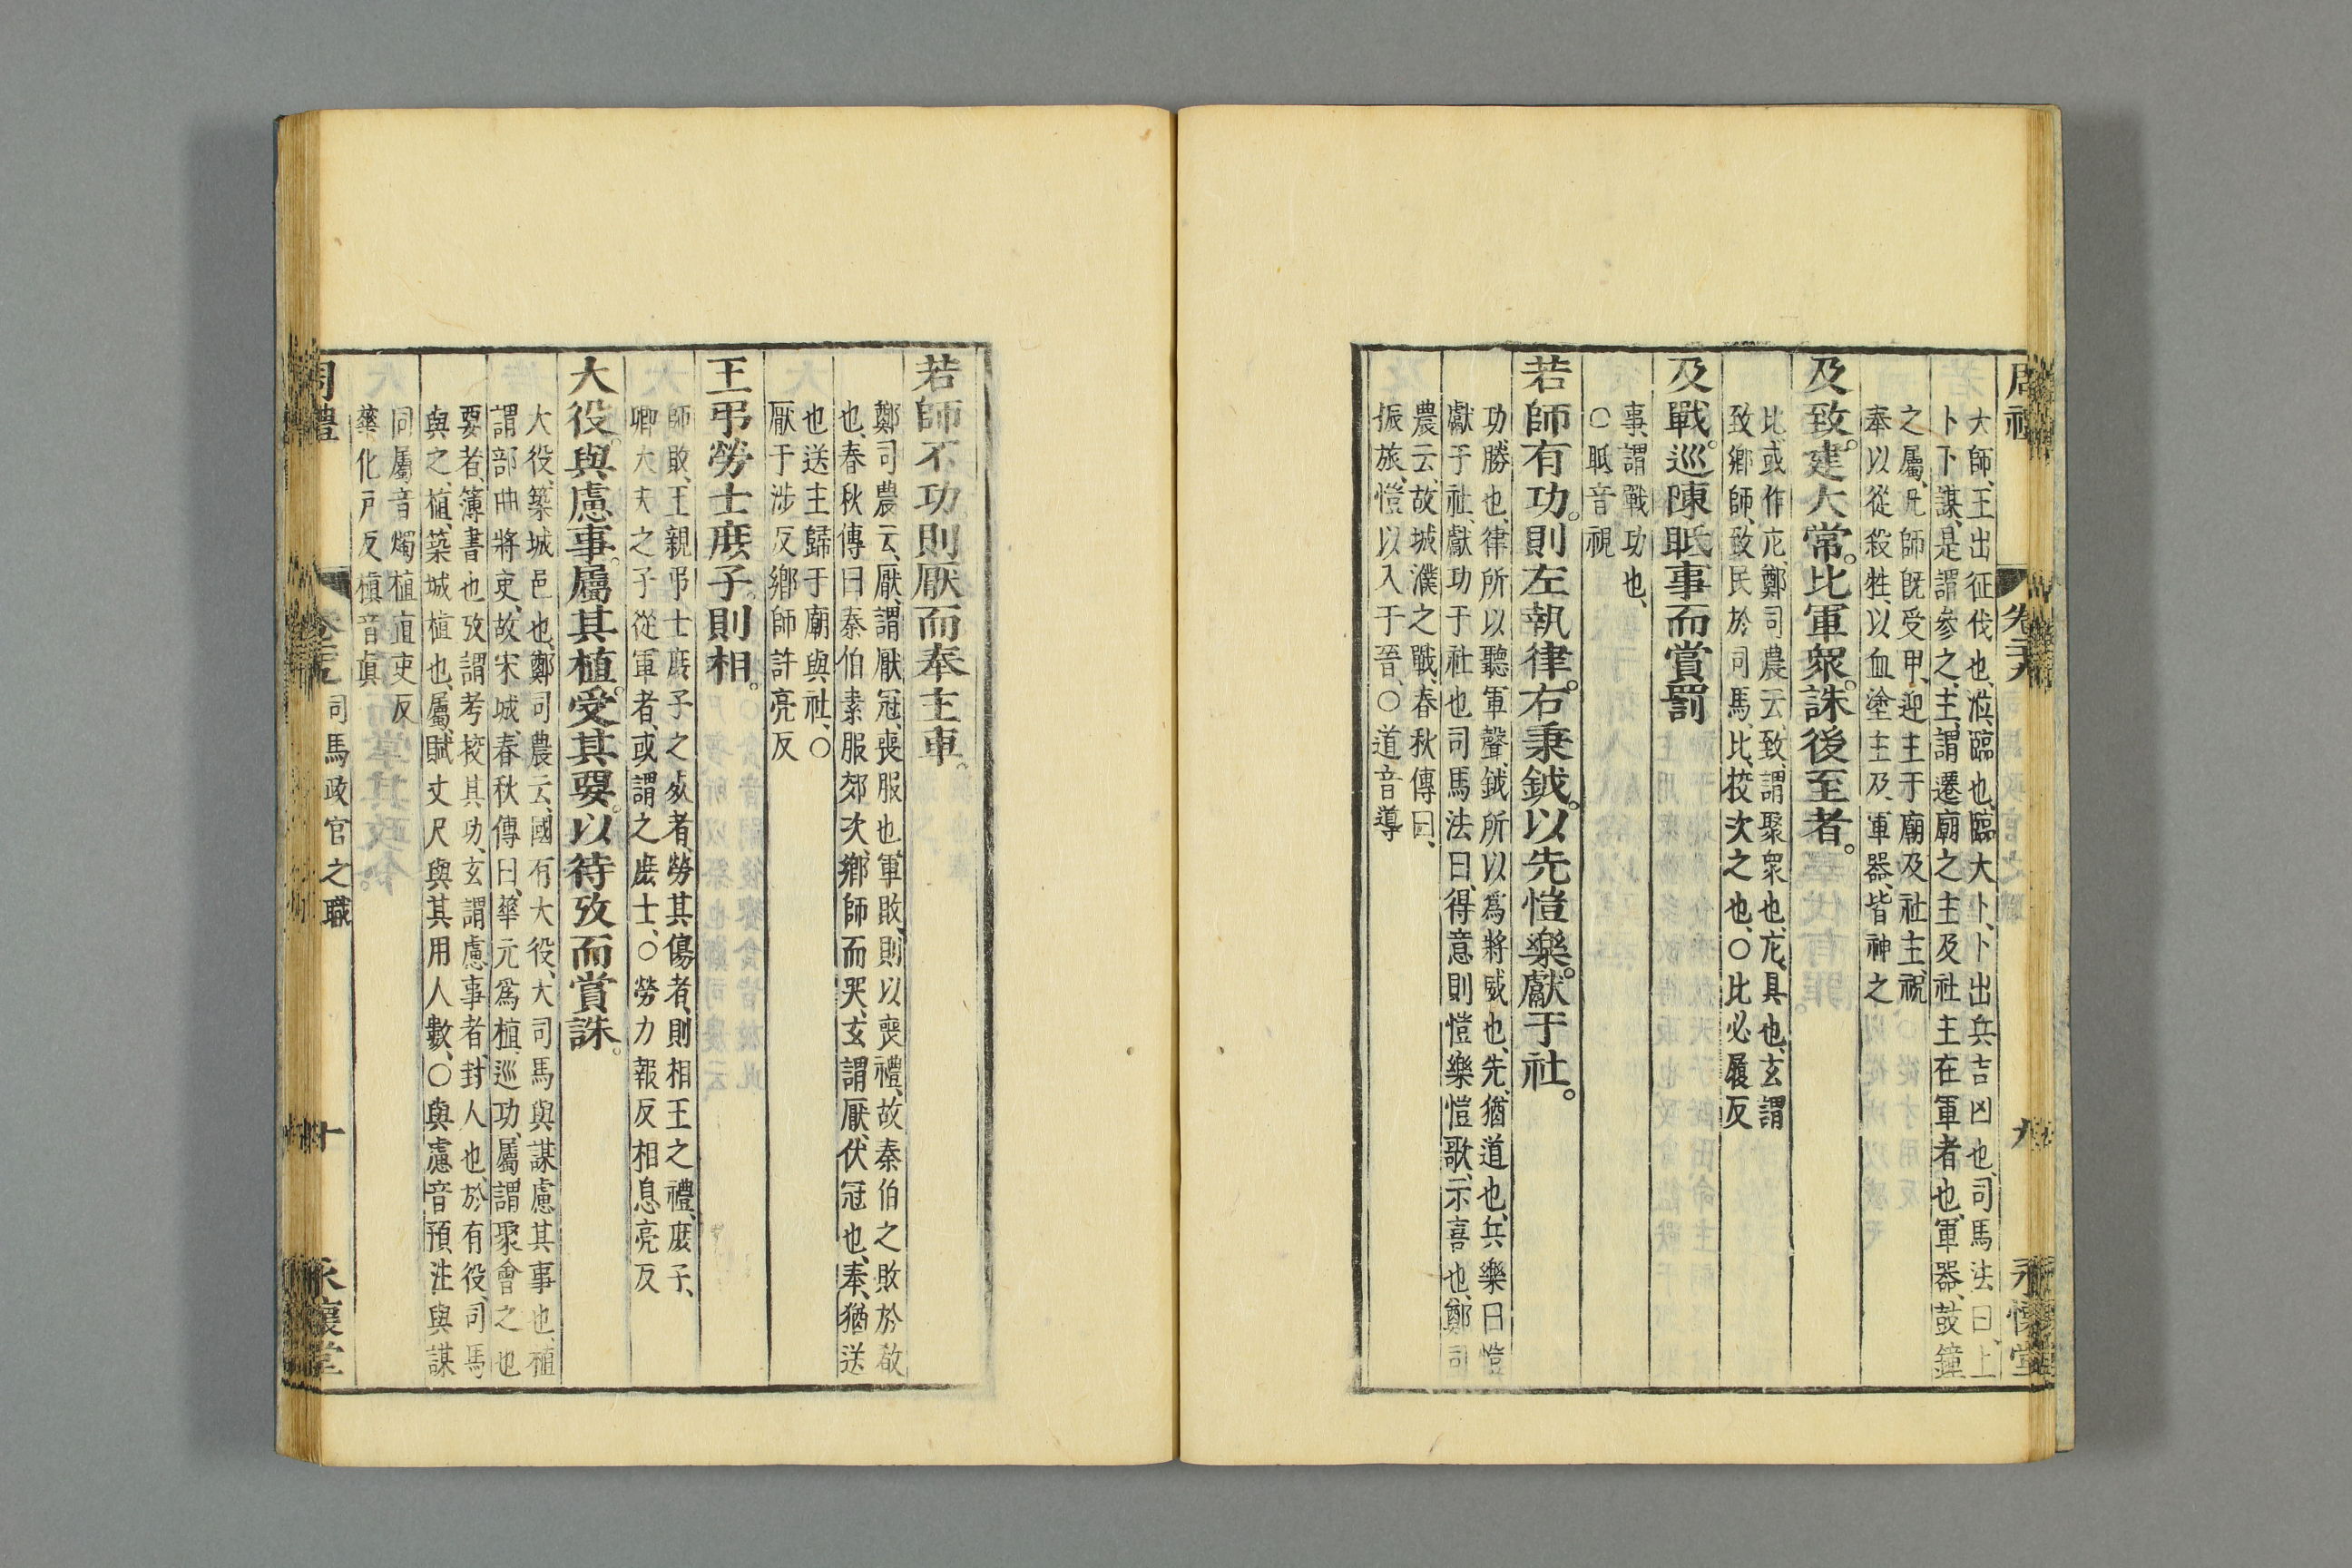 大師、王出征伐也、涖、臨也、臨大卜、卜出兵吉凶也、司馬法曰、上
卜下謀、是謂參之、主、謂遷廟之主及社主在軍者也、軍器、鼓鐸
之屬、凡師旣受甲、迎主于廟及社主、祝
奉以從殺牲、以血塗主及軍器、皆神之
及致。建大常。比軍衆。誅後至者。
比或作庀、鄭司農云、致、謂聚衆也、庀、具也、玄謂
致鄉師、致民於司馬、比、挍次之也、○比必履反
及戰。巡陳眡事而賞罰
事、謂戰功也、
○眡音視
若師有功。則左執律。右秉鉞。以先愷樂。獻于社。
功、勝也、律所以聽軍聲、鉞所以爲將威也、先、猶道也、兵樂曰愷
獻于社、獻功于社也司馬法曰、得意則愷樂愷歌、示喜也、鄭司
農云、故城濮之戰、春秋傳曰、
振旅、愷以入于晉、○道音導
若師不功則厭而奉主車。
鄭司農云、厭、謂厭冠、喪服也、軍敗、則以喪禮、故秦伯之敗於殽
也、春秋傳曰秦伯素服郊次、鄉師而哭、玄謂厭、伏冠也、奉、猶送
也送主歸于廟與社、○
厭于涉反鄉師許亮反
王弔勞士庶子。則相。
師敗、王親弔士庶子之死者、勞其傷者、則相王之禮、庶子、
卿大夫之子從軍者、或謂之庶士、○勞力報反相息亮反
大役。與慮事。屬其植。受其要。以待攷而賞誅。
大役、築城邑也、鄭司農云、國有大役、大司馬與謀慮其事也、植
謂部曲將吏、故宋城、春秋傳曰、華元爲植、巡功、屬、謂聚會之也
要者、簿書也攷謂考挍其功、玄謂慮事者、封人也、於有役、司馬
與之、植、築城楨也、屬、賦丈尺與其用人數、○與慮音預、注與謀
同屬音燭植直吏反
華化戶反楨音貞
周禮
卷二十九
司馬政官之職
十
永懷堂